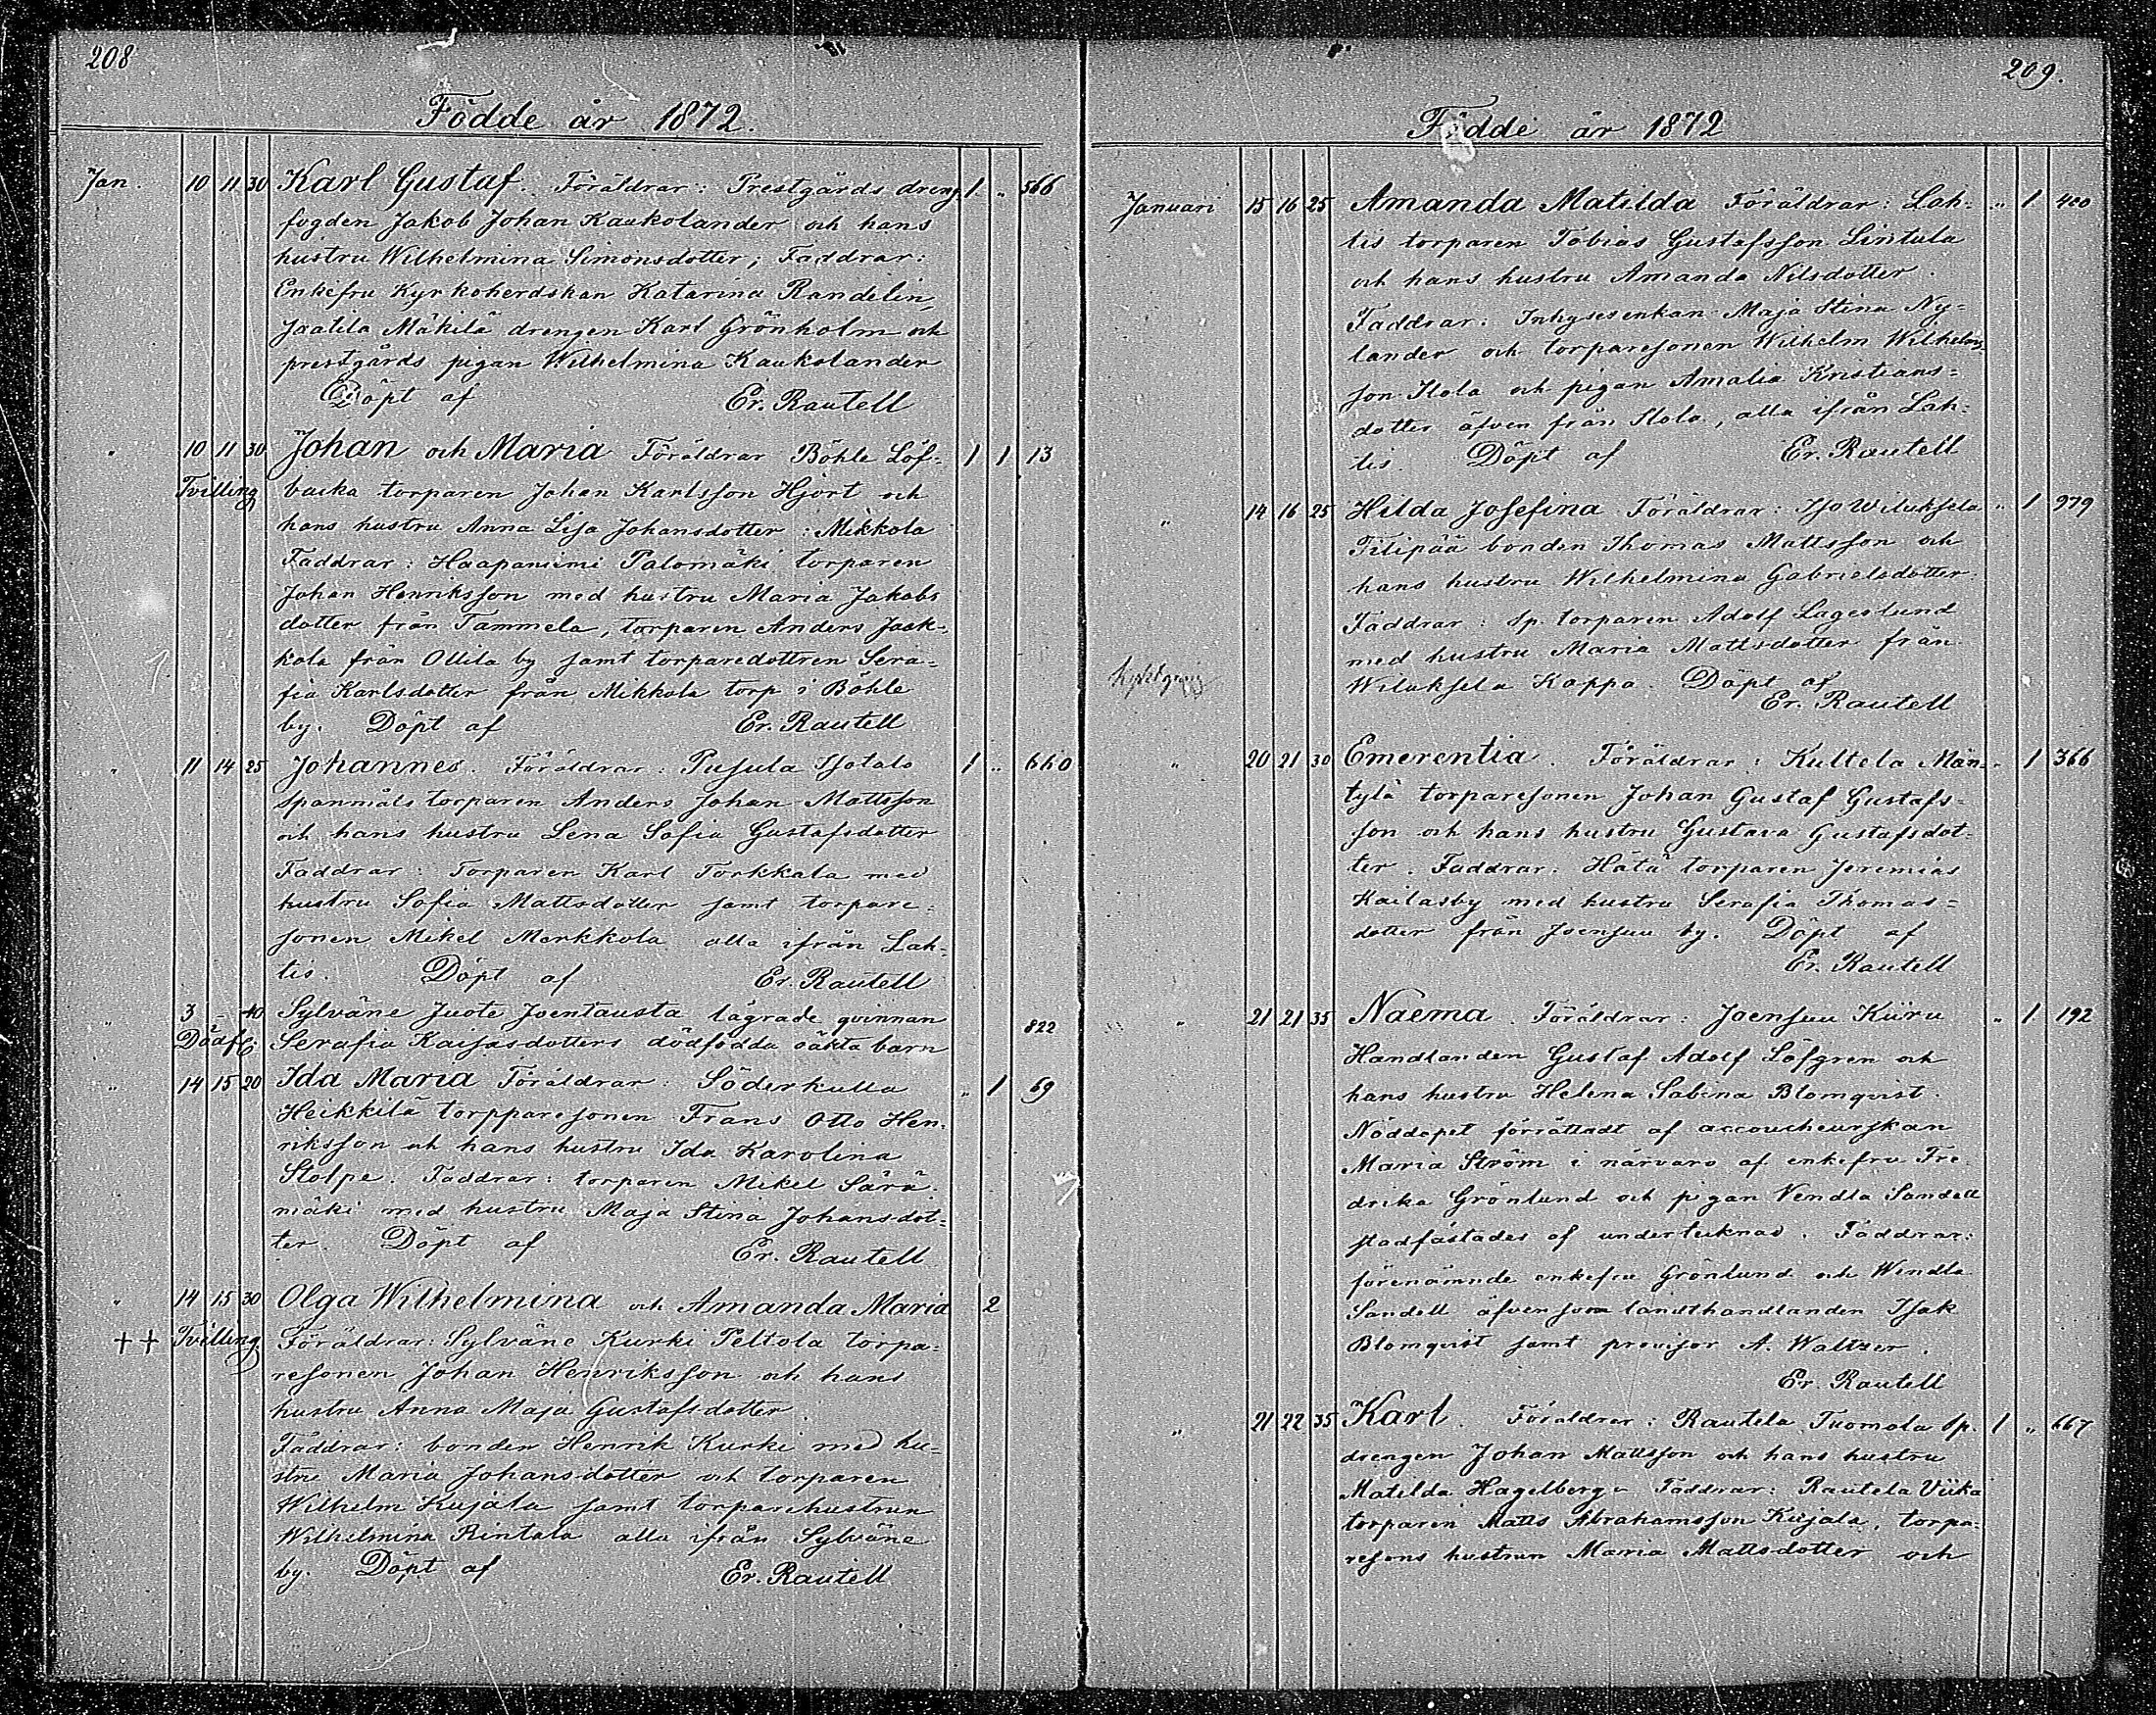 208
Födde år 1872.
Jan. 10 11 30 Karl Gustaf. Föräldrar: Prestgårds dreng- 1 " 566
fogden Jakob Johan Kaukolander och hans
hustru Wilhelmina Simonsdotter; Faddrar:
Enkefru Kyrkoherdskan Katarina Randelin,
Jaatila Mäkilä drengen Karl Grönholm och
prestgårds pigan Wilhelmina Kaukolander
Döpt af Er. Rautell
" 10 11 30 Johan och Maria Föräldrar Böhle Löf- 1 1 13
Tvilling backa torparen Johan Karlsson Hjort och
hans hustru Anna Lisa Johansdotter: Mikkola
Faddrar: Haapaniemi Palomäki torparen
Johan Henriksson med hustru Maria Jakobs
dotter från Tammela, torparen Anders Jaak-
kola från Ollila by samt torparedottren Sera-
fia Karlsdotter från Mikkola torp i Böhle
by. Döpt af Er. Rautell
" 11 14 25 Johannes. Föräldrar: Pusula Isotalo 1 " 660
spanmåls torparen Anders Johan Mattsson
och hans hustru Lena Sofia Gustafsdotter
Faddrar: Torparen Karl Torkkala med
hustru Sofia Mattsdotter samt torpare-
sonen Mikel Markkola alla ifrån Lah-
tis. Döpt af Er. Rautell
" 3 - 40 Sylväne Juote Joentausta lägrade qvinnan 822
Dödf: Serafia Kaisasdotters dödfödda oäkta barn
" 14 15 20 Ida Maria Föräldrar: Söderkulla " 1 69
Heikkilä torpparesonen Frans Otto Hen-
riksson och hans hustru Ida Karolina
Stolpe. Faddrar: torparen Mikel Särä-
mäki med hustru Maja Stina Johansdot-
ter. Döpt af Er. Rautell
" 14 15 30 Olga Wilhelmina och Amanda Maria 2
++ Tvilling. Föräldrar: Sylväne Kurki Peltola torpa-
resonen Johan Henriksson och hans
hustru Anna Maja Gustafsdotter.
Faddrar: bonden Henrik Kurki med hu-
stru Maria Johansdotter och torparen
Wilhelm Kujala samt torparehustrun
Wilhelmina Rintala alla ifrån Sylväne
by. Döpt af Er. Rautell
209.
Födde år 1872
Januari 15 16 25 Amanda Matilda Föräldrar: Lah- " 1 420
tis torparen Tobias Gustafsson Lintula
och hans hustru Amanda Nilsdotter.
Faddrar: Inhysesenkan Maja Stina Ny-
lander och torparesonen Wilhelm Wilhelms-
son Itola och pigan Amalia Kristians-
dotter äfven från Itola, alla ifrån Lah-
tis. Döpt af Er. Rautell
" 14 16 25 Hilda Josefina Föräldrar: Iso Wiluksela " 1 979
Filipää bonden Thomas Mattsson och
hans hustru Wilhelmina Gabrielsdotter.
Faddrar: sp. torparen Adolf Lagerlund
med hustru Maria Mattsdotter från
Wiluksela Kappa. Döpt af
Er. Rautell
" 20 21 30 Emerentia. Föräldrar: Kultela Män- " 1 366
tylä torparesonen Johan Gustaf Gustafs-
son och hans hustru Gustava Gustafsdot-
ter. Faddrar: Hätä torparen Jeremias
Kailasby med hustru Serafia Thomas-
dotter från Joensuu by. Döpt af
Er. Rautell
" 21 21 35 Naema. Föräldrar: Joensuu Kiiru " 1 192
Handlanden Gustaf Adolf Löfgren och
hans hustru Helena Sabina Blomqvist.
Nöddopet förrättadt af accoucheurskan
Maria Ström i närvaro af enkefru Fre-
drika Grönlund och pigan Vendla Sandell
stadfästades af undertecknad. Faddrar:
förenämnde enkefru Grönlund och Wendla
Sandell äfvensom landthandlanden Isak
Blomqvist samt provisor A. Waltzer.
Er. Rautell
" 21 22 35 Karl. Föräldrar: Rautela Tuomola sp. 1 " 667
drengen Johan Mattsson och hans hustru
Matilda Hagelberg. Faddrar: Rautela Viika
torparen Matts Abrahamsson Kujala, torpa-
resons hustrun Maria Mattsdotter och